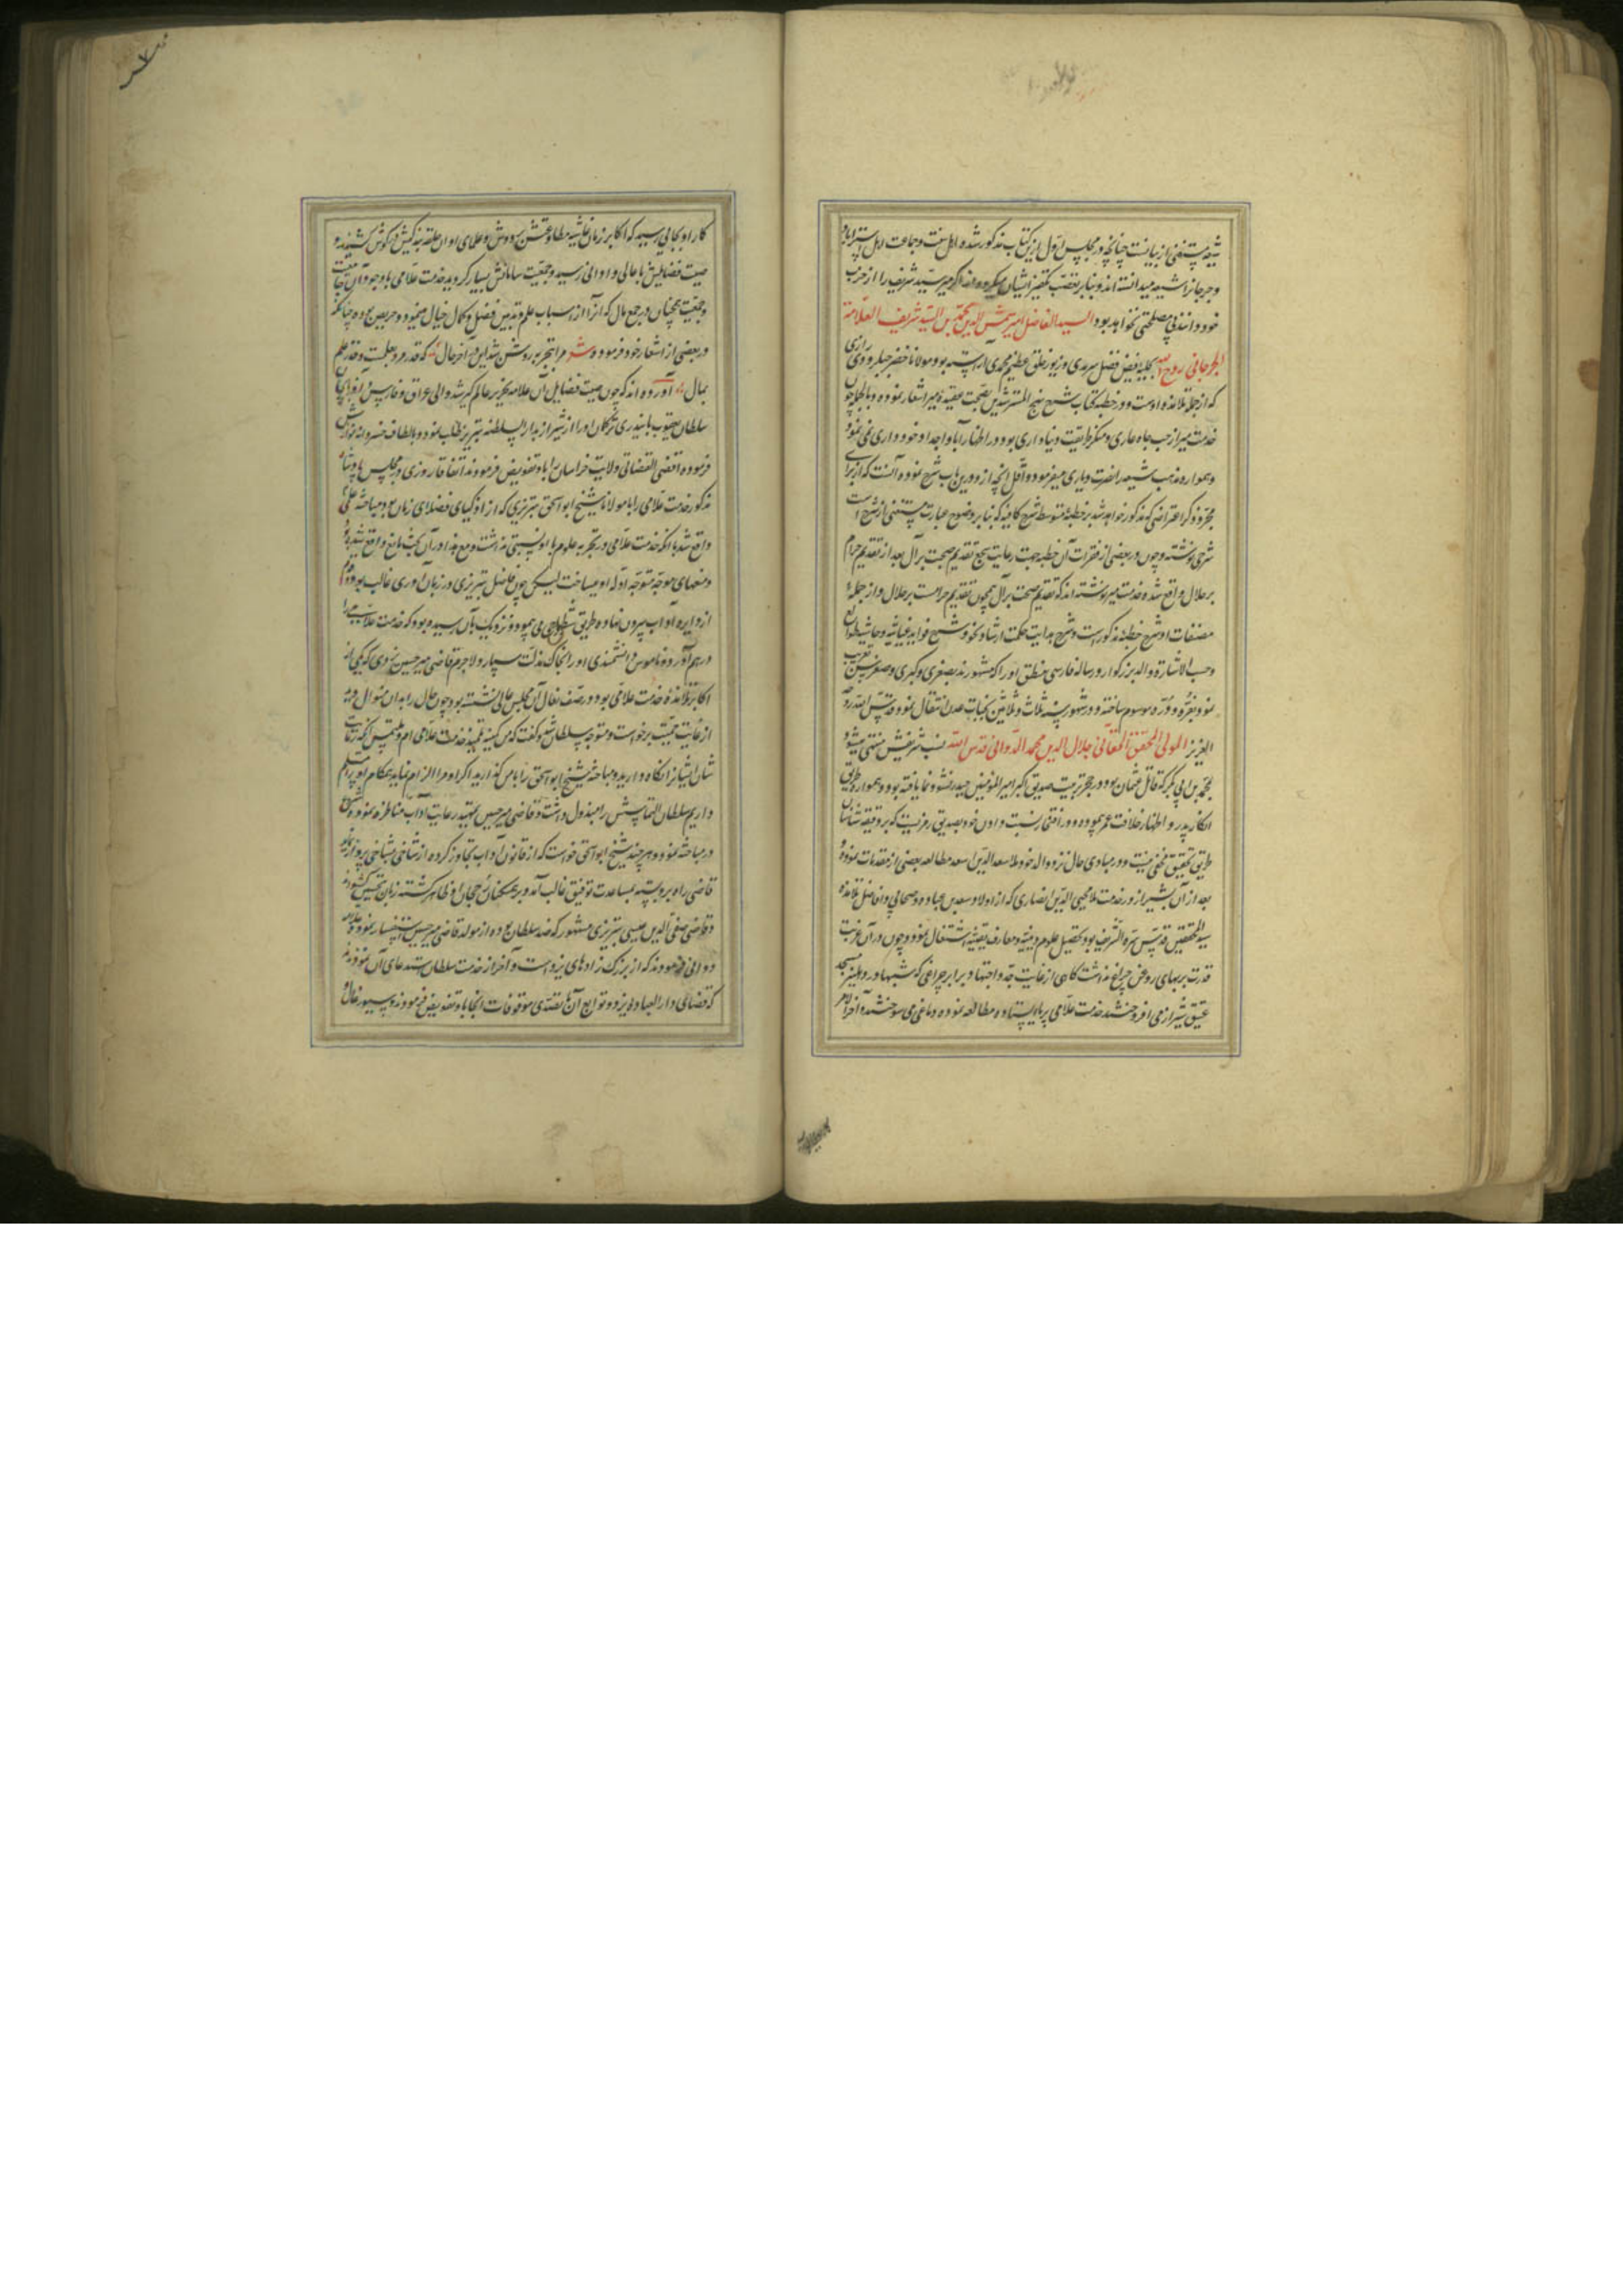 شیعه مستغنی از بیانست چنانچه در مجلس اول ازین کتاب مذکور شده اهل سنت و جماعت اهل استراباد
و جرجانرا شیعه میدانسته‌اند و بنابر تعصب تکفیر ایشان میکرده‌اند اگر میر سید شریف را از حزب
خود دانند بی مصلحتی نخواهد بود السید الفاضل امیر شمس الدین محمد بن السید شریف العلامة
الجرجانی روح الله بحلیه فیض فضل سرمدی و زیور خلق عظیم محمدی آراسته بود مولانا خضر حبلرودی رازی
که از جمله تلامذه اوست در خطبه کتاب شرح نهج المسترشدین بصحت عقیده میر اشعار نموده و بالجمله چون
خدمت میر از حب جاه عاری و منکر طریقت دنیاداری بود در اظهار آبا و اجداد خودداری نمی‌نمود
و همواره مذهب شیعه را نصرت و یاری میفرمود و اقل آنچه از و درین باب شرح نموده آنست که از برای
مجرد ذکر اعتراضی که مذکور خواهد شد بر خطبه متوسط شرح کافیه که بنابر وضوح عبارت مستغنی از شرح است
شرحی نوشته و چون در بعضی از فقرات آن خطبه جهت رعایت سجع تقدیم صحب بر آل بعد از تقدیم حرام
بر حلال واقع شده خدمت میر نوشته‌اند که تقدیم صحب بر آل همچون تقدیم حرامست بر حلال و از جمله
مصنفات او شرح خطبه مذکور است و شرح هدایت حکمت و ارشاد نحو و شرح فواید غیاثیه و حاشیه طوالع
و حسب الاشارة والد بزرگوار دو رساله فارسی منطق او را که مشهورند بصغری و کبری و معرب ساخته تعریب
نمود بغره و دره موسوم ساخته و در شهور سنه ثلاث و ثلاثین بجنات عدن انتقال نمود قدس الله روحه
العزیز المولی المحقق الحقانی جلال الدین محمد الدوانی قدس الله نسب شریفش منتهی میشود
بمحمد بن ابی بکر که قاتل عثمان بود و در حجر تربیت صدیق اکبر امیر المؤمنین حیدر نشو و نما یافته بود و همواره طریق
انکار پدر و اظهار خلافت عمر پیموده و در افتخار نسبت دادن خود بصدیق رمزیست که بر دقیقه شناسان
طریق تحقیق مخفی نیست و در مبادی حال نزد والد خود ملا سعد الدین اسعد مطالعه بعضی از مقدمات نموده
بعد از آن بشیراز در خدمت ملا محیی الدین انصاری که از اولاد سعد بن عباده صحابی و افاضل تلامذه
سید المحققین قدس سره الشریف بود بتحصیل علوم دینیه و معارف یقینیه اشتغال نمود و چون در آن غربت
قدرت بر بهای روغن چراغ نداشت گاهی از غایت جد و اجتهاد برابر چراغی که شبها در دهلیز مسجد
عتیق شیراز می افروختند خدمت علامی بر پا ایستاده مطالعه نموده دماغی می سوختند و آخر الامر
کار او بجائی رسید که اکابر زمان غاشیه مطاوعتش بر دوش و علمای اوان حلقه بندگیش در گوش کشیدند و
صیت فضایلش باعالی و ادانی رسید و جمعیت سامانش بسیار گردید خدمت علامی با وجود آن جاه
و جمعیت همچنان در جمع مال که آنرا از اسباب علم و تدریس فضل و کمال خیال مینمود و حریص بوده چنانکه
در بعضی از اشعار خود فرموده شعر مرا بتجربه روشن شد این در آخر حال که قدر مرد بعلمست و قدر علم
بمال آورده‌اند که چون صیت فضایل آن علامه نحریر عالم گیر شد والی عراق و فارس و آذربایجان
سلطان یعقوب بایندری ترکمان او را از شیراز بدار السلطنه تبریز طلب نمود و بالطاف خسروانه نوازش
فرموده اقضی القضاتی ولایت خراسان باو تفویض فرمودند اتفاقا روزی در مجلس پادشاه
مذکور خدمت علامی را با مولانا شیخ ابو اسحق تبریزی که از اذکیای فضلای زمان بود مباحثه علمی
واقع شد با آنکه خدمت علامی در تجربه علوم باو نسبتی نداشت و مع هذا در آن بحث مانع واقع شده بود
و منعهای موجه متوجه ادله او میساخت لیکن چون فاضل تبریزی در زبان آوری غالب بود و قدم
از دایره آداب بیرون نهاده طریق شطاحی می پیمود و نزدیک بآن رسیده بود که خدمت علامی را
درهم آورد و ناموس دانشمندی او را بخاک مذلت سپارد لاجرم قاضی میر حسین یزدی که یکی از
اکابر تلامذه خدمت علامی بود و در صف نعال آن مجلس عالی نشسته بود چون حال را بدان منوال دید
از غایت حمیت برخاست و متوجه سلطان شد و گفت که من کمینه تلمیذ خدمت علامی ام و ملتمس آنکه رعایت
شان ایشانرا نگاه دارید و مباحثه شیخ ابو اسحق را با من گذارید اگر او مرا الزام نماید همگام او را مسلم
داریم سلطان التماسش را مبذول داشت و قاضی میر حسین بتمهید رعایت آداب مناظره نموده شروع
در مباحثه نمود و هر چند شیخ ابو اسحق خواست که از قانون آداب تجاوز کرده از شاخی بشاخی پرواز نماید
قاضی راه برو بسته بمساعدت توفیق غالب آمد و بر همگنان رجحان او ظاهر گشته زبان تحسین گشودند
و قاضی صفی الدین عیسی تبریزی مشهور که صدر سلطان بوده از مولد قاضی میر حسین استفسار نمود علامه
دوانی فرمودند که از بزرگ زادهای یزد است و آخر از خدمت سلطان استدعای آن نمودند
که قضای دار العباده یزد و توابع آن با تصدی موقوفات آنجا باو تفویض فرمودند و سیورغال